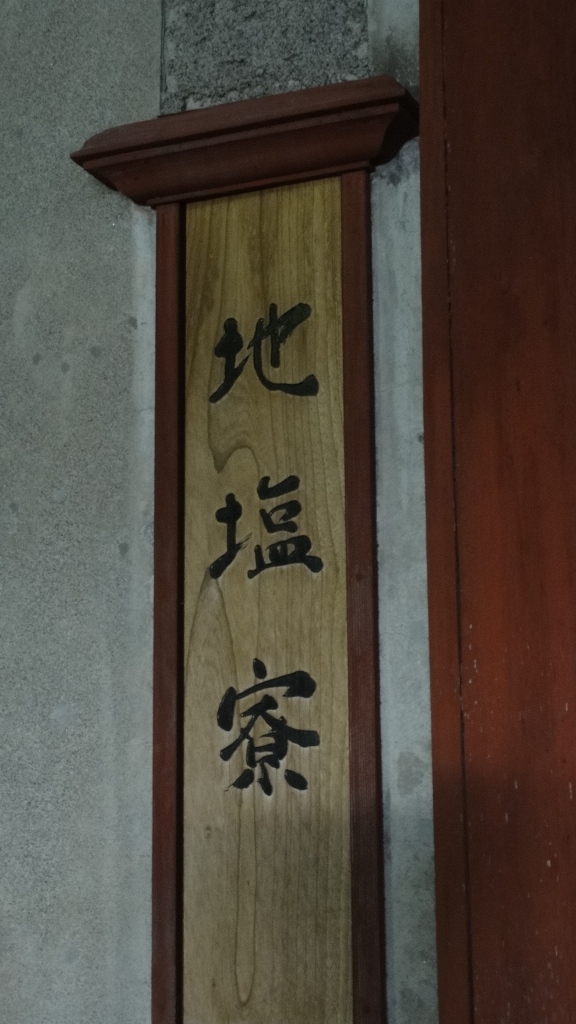 地塩寮